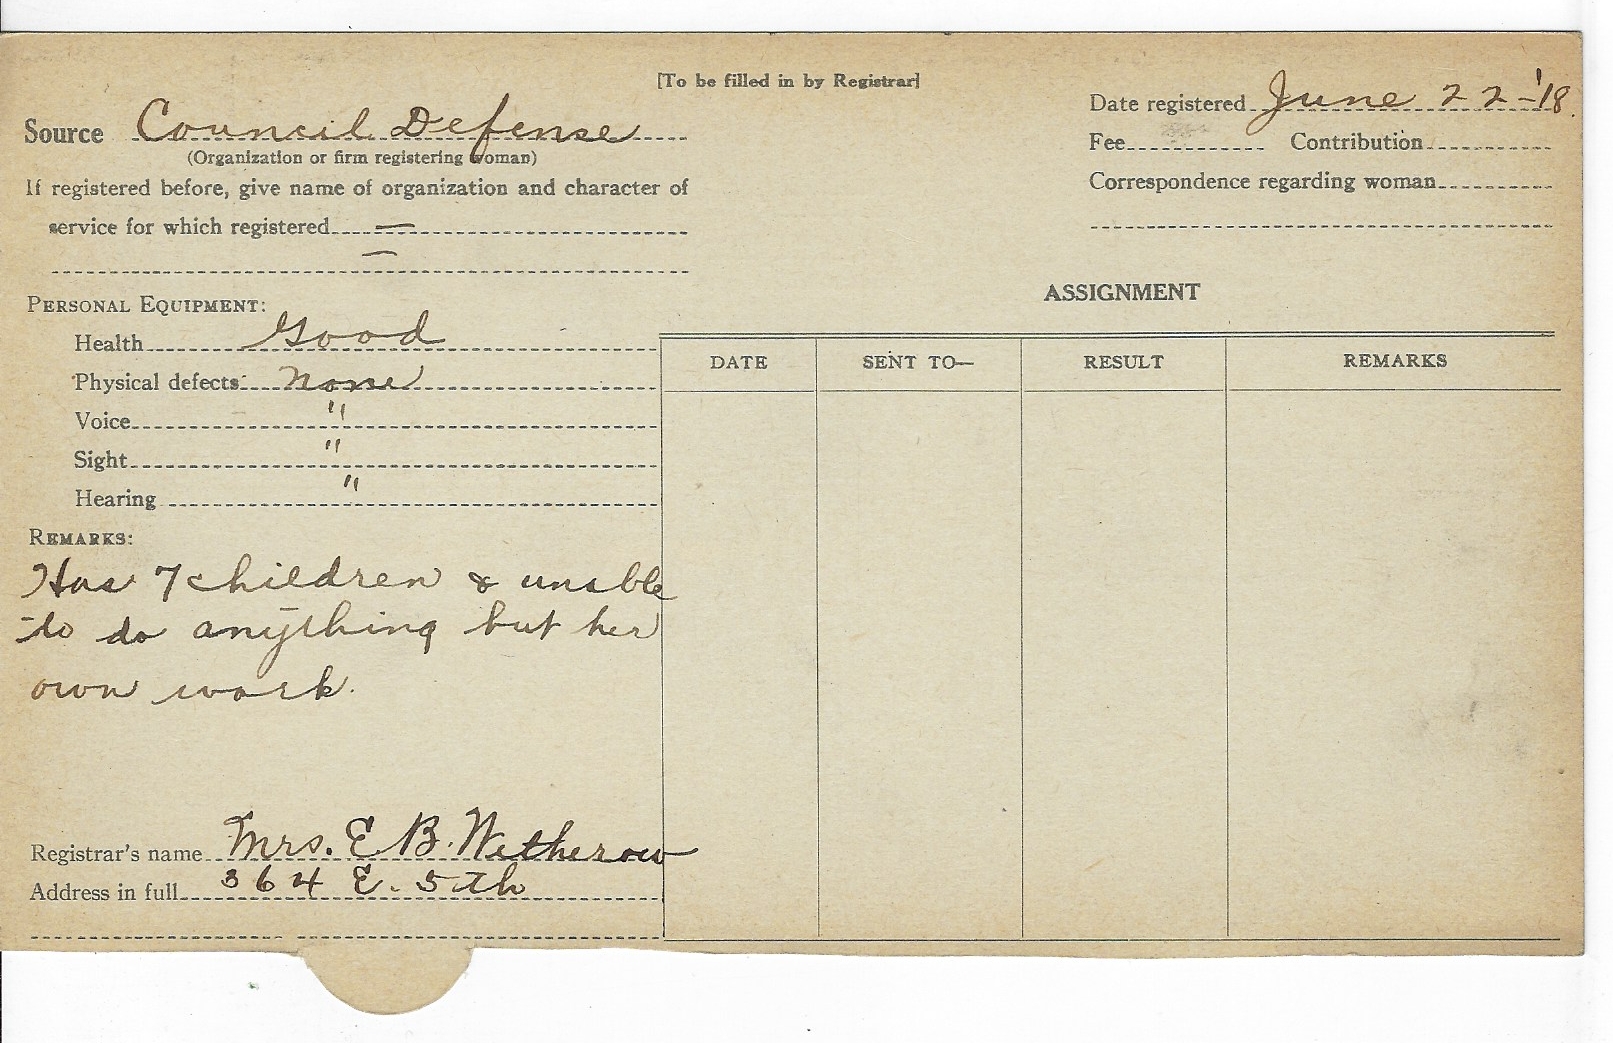 [To be filled in by Registrar]
Source Council Defense
(Organization or firm registering woman)
If registered before, give name of organization and character of
service for which registered —
—
Date registered June 22-'18.
Fee Contribution
Correspondence regarding woman
PERSONAL EQUIPMENT:
Health Good
Physical defects None
Voice "
Sight "
Hearing "
REMARKS:
Has 7 children & unable
to do anything but her
own work.
Registrar's name Mrs. E B. Witherow
Address in full 364 E. 5th
ASSIGNMENT
DATE SENT TO— RESULT REMARKS